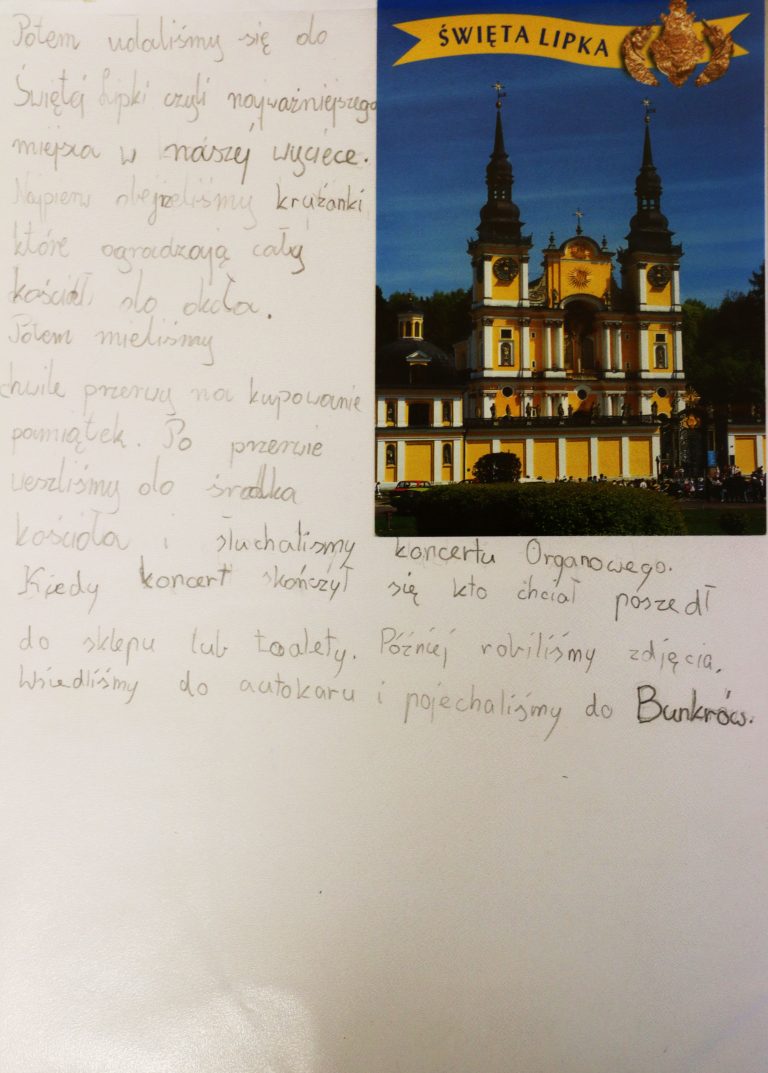 ŚWIĘTA LIPKA
Potem udaliśmy się do
Świętej Lipki czyli najważniejszego
miejsca w naszej wyciece.
Najpierw obejrzeliśmy krużanki
które ogradzają cały
kościół do okoła.
Potem mieliśmy
chwile przerwy na kupowanie
pamiątek. Po przerwie
weszliśmy do środka
kościoła i słuchaliśmy koncertu Organowego.
Kiedy koncert skończył się kto chciał poszedł
do sklepu lub toalety. Później robiliśmy zdjęcia.
Wsiedliśmy do autokaru i pojechaliśmy do Bunkrów.